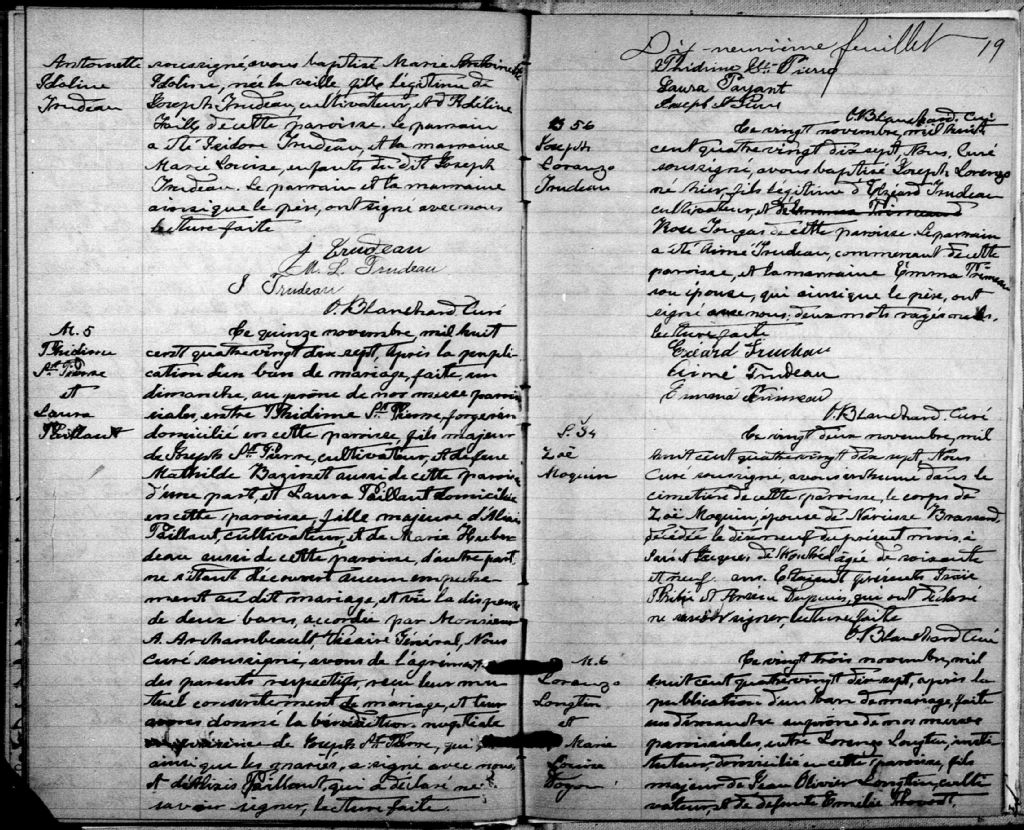 Antoinette
Idoline
Trudeau
soussigné, avons baptisé Marie Antoinette
Idoline, née la veille, fille légitime de
Joseph Trudeau, cultivateur, et d'Adéline
de cette paroisse. Le parrain
a été Isidore Trudeau, et la marraine
Marie Louise, enfants du dit Joseph
Trudeau. Le parrain et la marraine
ainsi que le père, ont signé avec nous
lecture faite
J Trudeau
M. L. Trudeau
J Trudeau
O. Blanchard Curé
M. 5
Phidime
St. Pierre
et
Laura
Paillant
Ce quinze novembre, mil huit
cent quatre vingt dix sept, après la publi-
cation d'un ban de mariage, faite, un
dimanche, au prône de nos messes parois
siales, entre Phidime St. Pierre, forgeron
domicilié en cette paroisse, fils majeur
de Joseph St. Pierre, cultivateur, et de feue
Mathilde Bazinet aussi de cette paroisse
d'une part, et Laura Paillant domiciliée
en cette paroisse, fille majeure d'Alexis
Paillant, cultivateur, et de Marie
aussi de cette paroisse, d'autre part,
ne s'étant découvert aucun empêche-
ment au dit mariage, et vu la dispense
de deux bans, accordée par Monsieur
A. Archambeault, Vicaire Général, Nous
Curé soussigné, avons de l'agrément
des parents respectifs, reçu leur mu
tuel consentement de mariage, et leur
avons donné la bénédiction nuptiale
en présence de Joseph St. Pierre, qui
ainsi que les mariés, a signé avec nous,
et d'Alexis Paillant, qui a déclaré ne
savoir signer, lecture faite
Dix-neuvième feuillet 19
Phidime St. Pierre
Laura Payant
Joseph St Pierre
O. Blanchard. Curé
B 56
Joseph
Loranzo
Trudeau
Ce vingt novembre, mil huit
cent quatre vingt dix sept, Nous, Curé
soussigné, avons baptisé Joseph Lorenzo
né hier, fils légitime d'Elzéard Trudeau
cultivateur, et d'Emma Trimeau
Rose Fougas de cette paroisse. Le parrain
a été Aimé Trudeau, commerçant de cette
paroisse, et la marraine Emma Trimeau
son épouse, qui ainsi que le père, ont
signé avec nous, deux mots rayés nuls.
lecture faite
Trudeau
Aimé Trudeau
Emma Trimeau
O. Blanchard. Curé
S. 34
Zoë
Moquin
Ce vingt deux novembre, mil
huit cent quatre vingt dix sept, Nous
Curé soussigné, avons inhumé dans le
cimetière de cette paroisse, le corps de
Zoë Moquin, épouse de Narcisse Brassard,
décédée le dix neuf du présent mois, à
Saint Jacques de Montréal âgée de soixante
et neuf ans. Etaient présents
et Dupuis, qui ont déclaré
ne savoir signer, lecture faite
O. Blanchard Curé
M. 6
Loranzo
Longtin
et
Marie
Louise
Ce vingt trois novembre, mil
huit cent quatre vingt dix sept, après la
publication d'un ban de mariage, faite
un dimanche au prône de nos messes
paroissiales, entre Lorenzo Longtin, culti
vateur, domicilié en cette paroisse, fils
majeur de Jean Olivier Longtin, culti
vateur, et de defunte Emélie